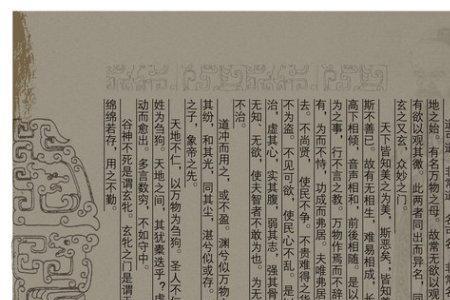 地之始。有名万物之母。故常无欲以观
有欲以观其徼。此两者同出而异名，同
玄之又玄，众妙之门。
天下皆知美之为美，斯恶矣；皆知善
斯不善已。故有无相生，难易相成，长
高下相倾，音声相和，前後相随。是以
为之事，行不言之教。万物作焉而不辞
有，为而不恃，功成而弗居。夫唯弗居
去。不尚贤，使民不争。不贵难得之货
不为盗。不见可欲，使民心不乱。是
治，虚其心，实其腹，弱其志，强其骨
无知、无欲，使夫智者不敢为也。为无
不治。
道冲而用之，或不盈。渊兮似万物
其纷，和其光，同其尘，湛兮似或存。
之子，象帝之先。
天地不仁，以万物为刍狗。圣人不仁
姓为刍狗。天地之间，其犹橐迭乎？虚
动而愈出。多言数穷，不如守中。
谷神不死是谓玄牝。玄牝之门是谓
绵绵若存，用之不勤。